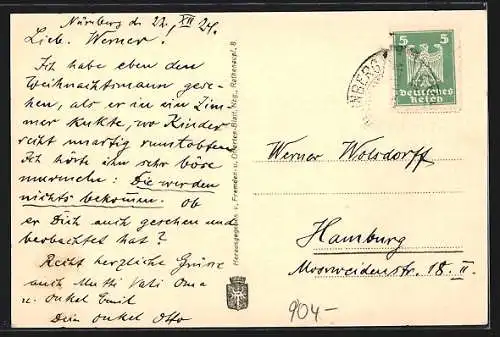 Nürnberg d. 22. XII 24.
Lieb. Werner!
Ich habe eben den
Weihnachtsmann gese-
hen, als er in ein Zim-
mer kukte, wo Kinder
recht unartig rumtobten
Ich hörte ihn sehr böse
murmeln: Die werden
nichts bekommen. Ob
er Dich auch gesehen und
beobachtet hat?
Recht herzliche Grüsse
auch Mutti Vati Oma
u. Onkel Emil
Dein Onkel Otto
Herausgegeben v. Fremden- u. Offerten-Blatt, Nbg., Rathenaupl. 8.
NBERG
5 5
Deutsches
Reich
Werner Wolsdorff
Hamburg
Moorweidenstr. 18. II.
904-